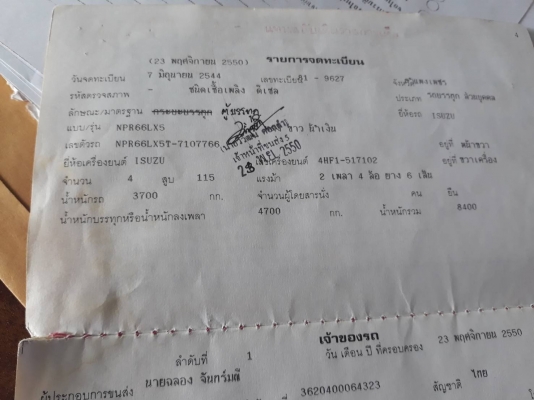 (23 พฤศจิกายน 2550) รายการจดทะเบียน
วันจดทะเบียน 7 มิถุนายน 2544 เลขทะเบียน 81 - 9627 จังหวัด
รหัสตรวจสภาพ - ชนิดเชื้อเพลิง ดีเซล ประเภท รถบรรทุก ส่วนบุคคล
ลักษณะ/มาตรฐาน กระบะบรรทุก ตู้บรรทุก ยี่ห้อรถ ISUZU
แบบ/รุ่น NPR66LX5 ขาว น้ำเงิน
เลขตัวรถ NPR66LX5T-7107766 อยู่ที่
เจ้าหน้าที่ขนส่ง 5
2550
ยี่ห้อเครื่องยนต์ ISUZU เลขเครื่องยนต์ 4HF1-517102 อยู่ที่ ขวาเครื่อง
จำนวน 4 สูบ 115 แรงม้า 2 เพลา 4 ล้อ ยาง 6 เส้น
น้ำหนักรถ 3700 กก. จำนวนผู้โดยสารนั่ง คน ยืน
น้ำหนักบรรทุกหรือน้ำหนักลงเพลา 4700 กก. น้ำหนักรวม 8400
เจ้าของรถ
ลำดับที่ 1 วัน เดือน ปี ที่ครอบครอง 23 พฤศจิกายน 2550
ผู้ประกอบการขนส่ง นายฉลอง จันทร์มณี 3620400064323 สัญชาติ ไทย